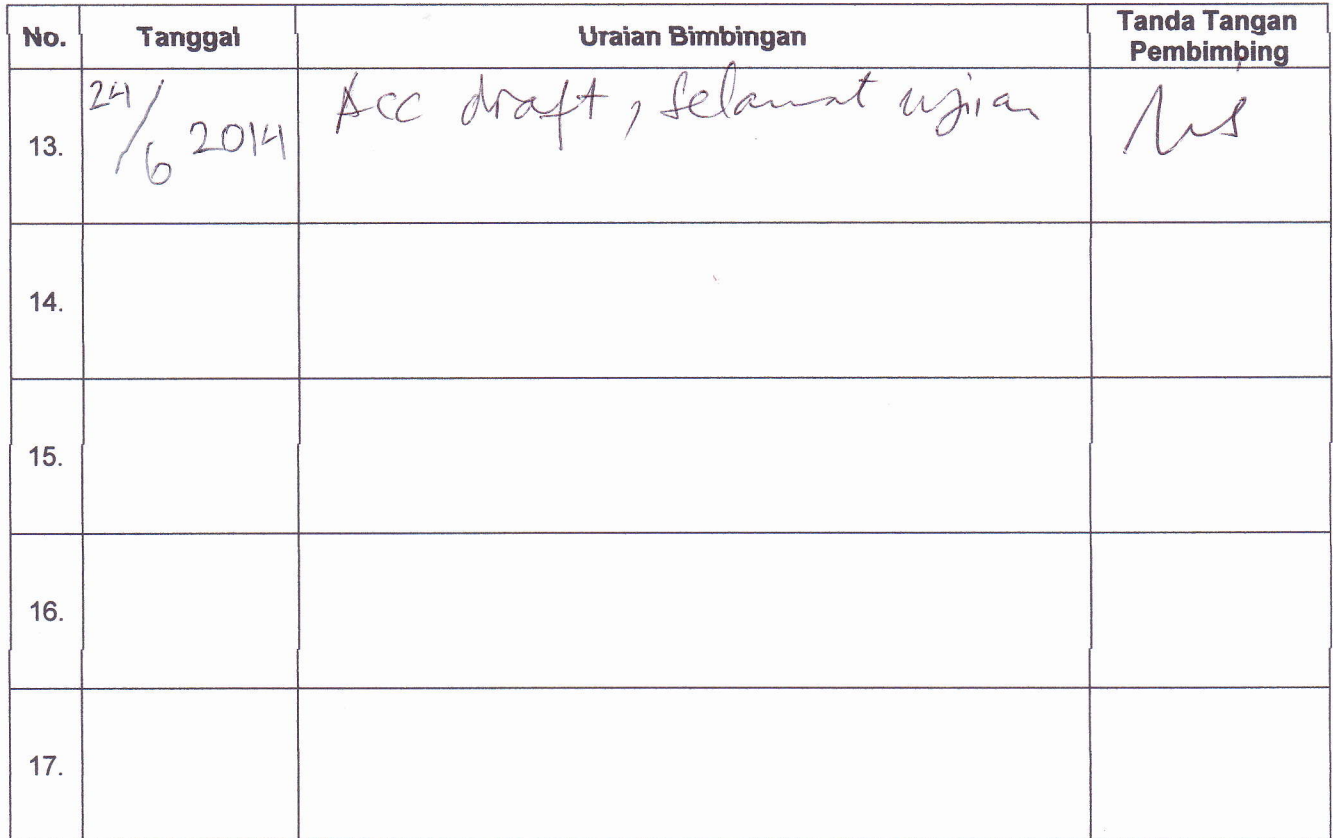 No. Tanggal Uraian Bimbingan Tanda Tangan Pembimbing
13. 24/6 2014 Acc draft, selamat ujian
14.
15.
16.
17.